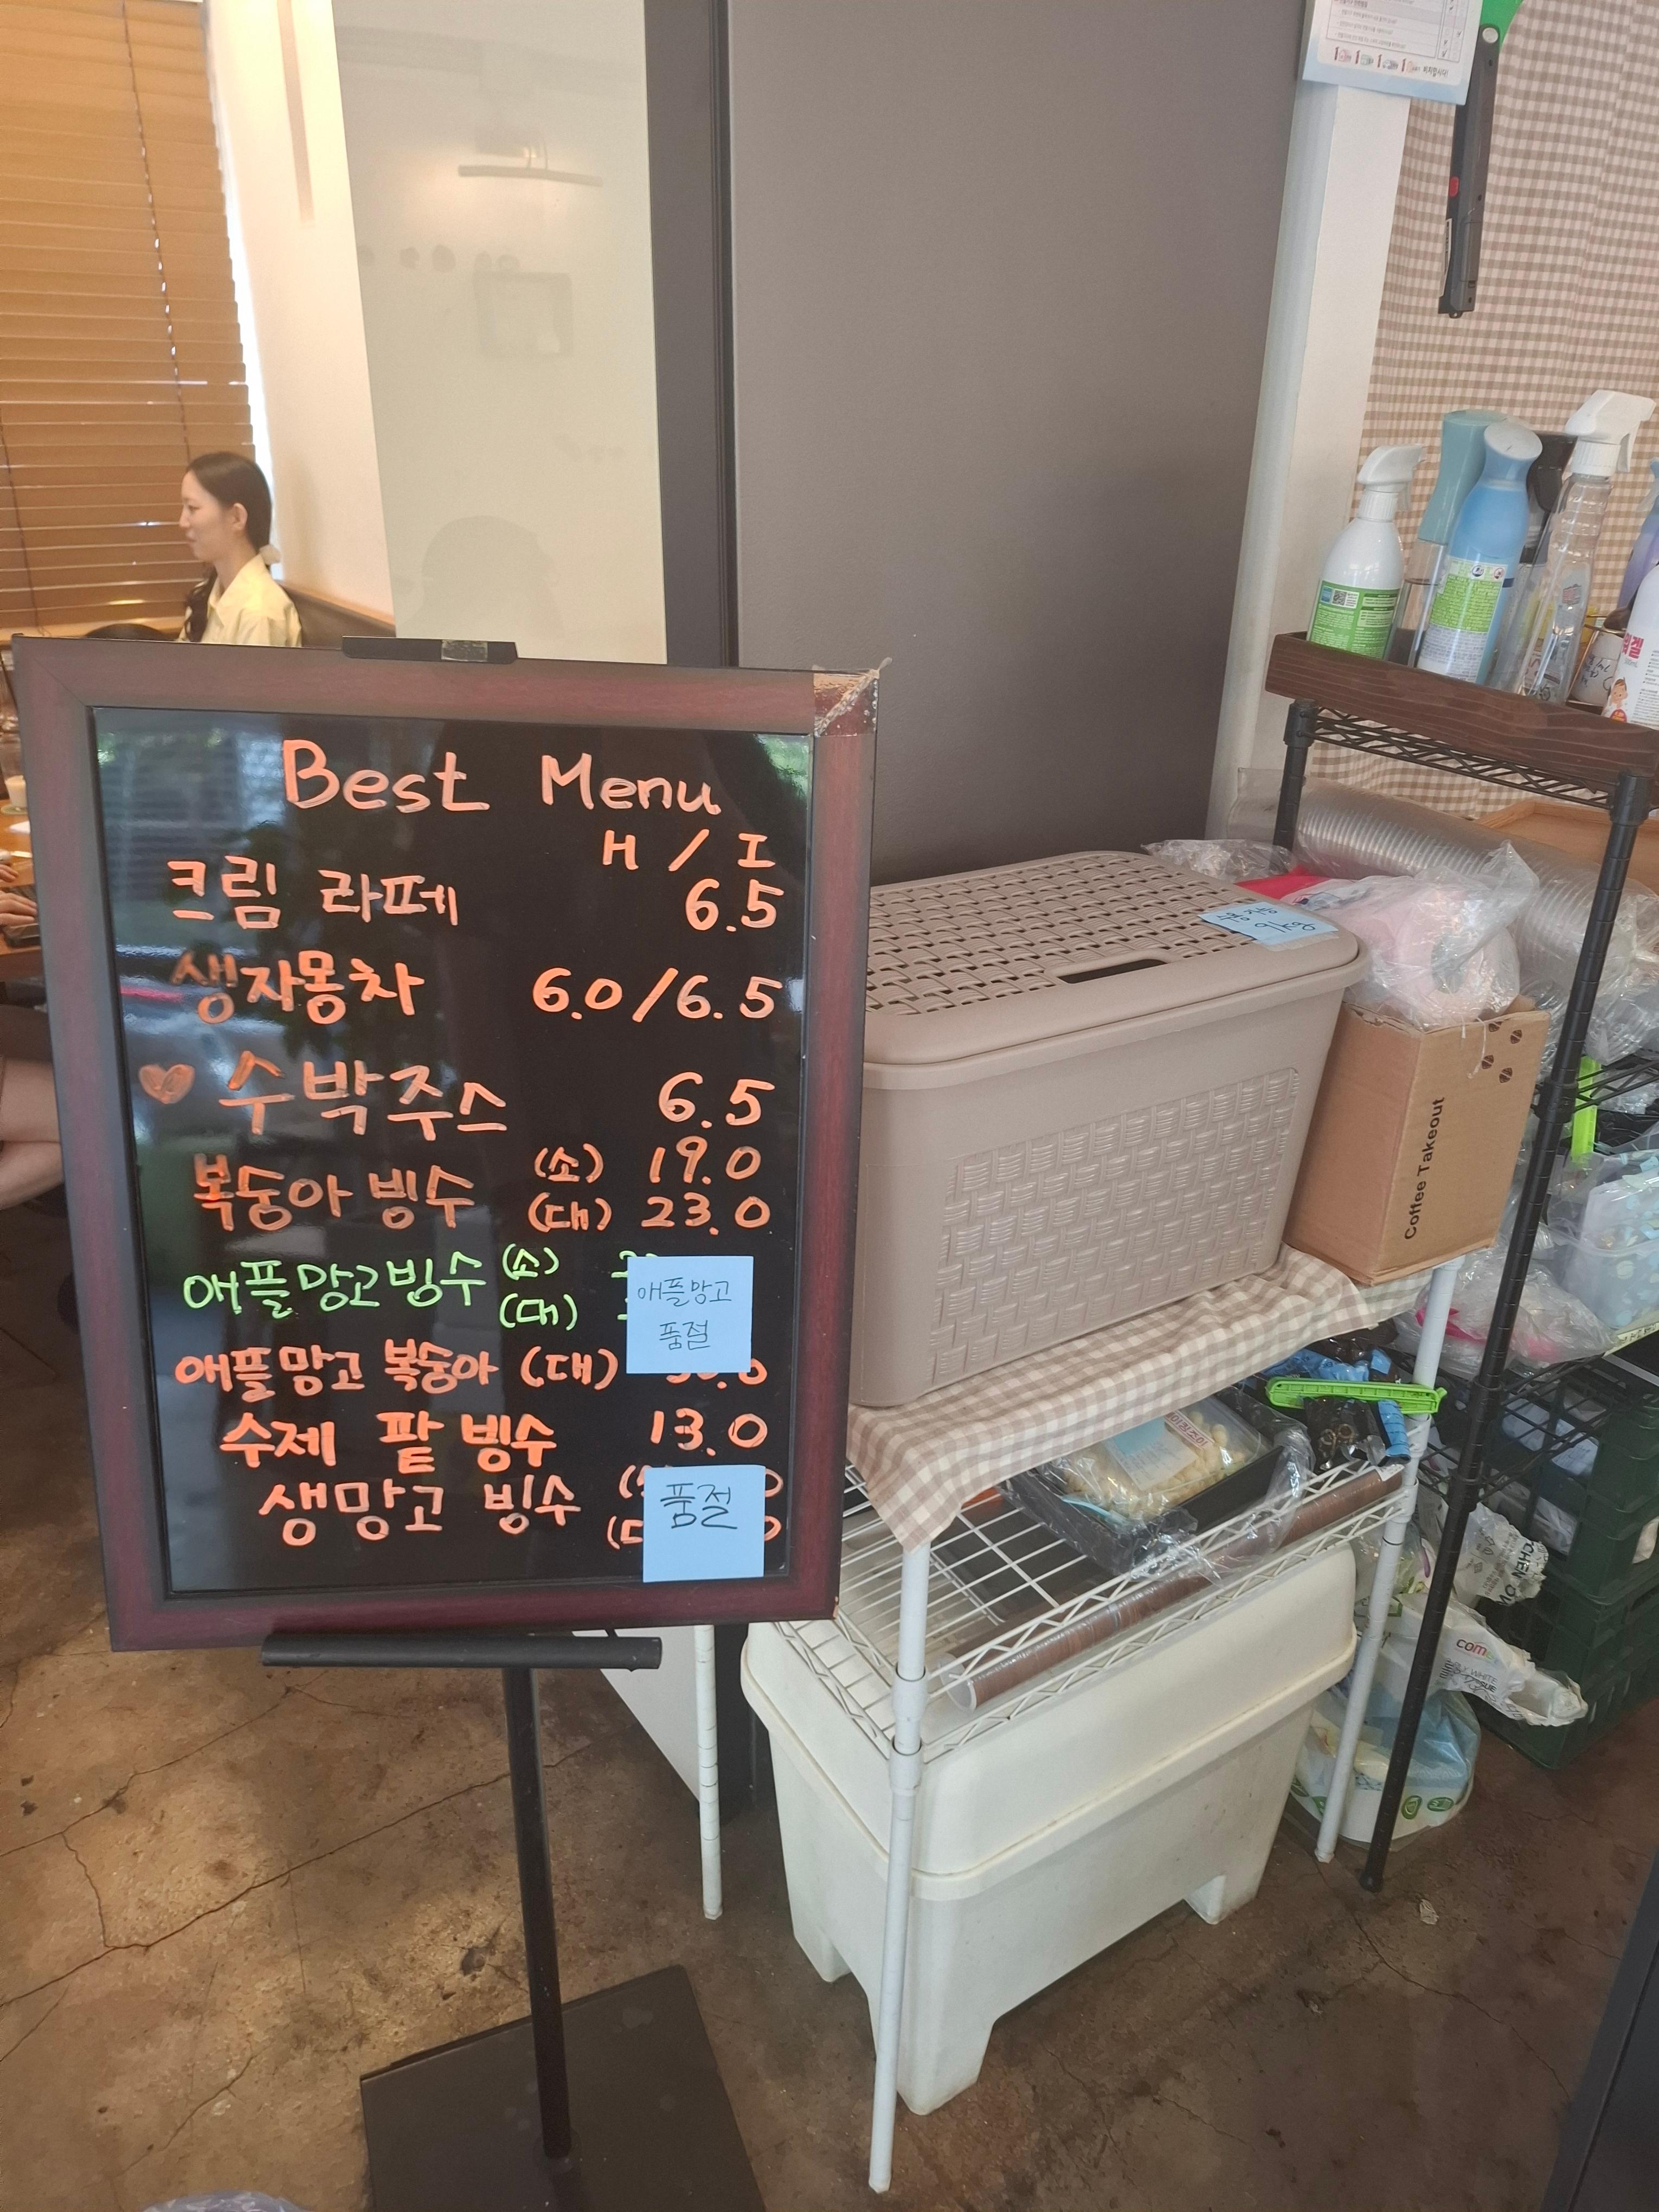 Best Menu
H / I
크림 라떼 6.5
생자몽차 6.0/6.5
♡ 수박주스 6.5
복숭아 빙수 (소) 19.0
(대) 23.0
애플망고빙수 (소)
(대)
애플망고
품절
애플망고 복숭아 (대)
수제 팥 빙수 13.0
생망고 빙수
품절
Coffee Takeout